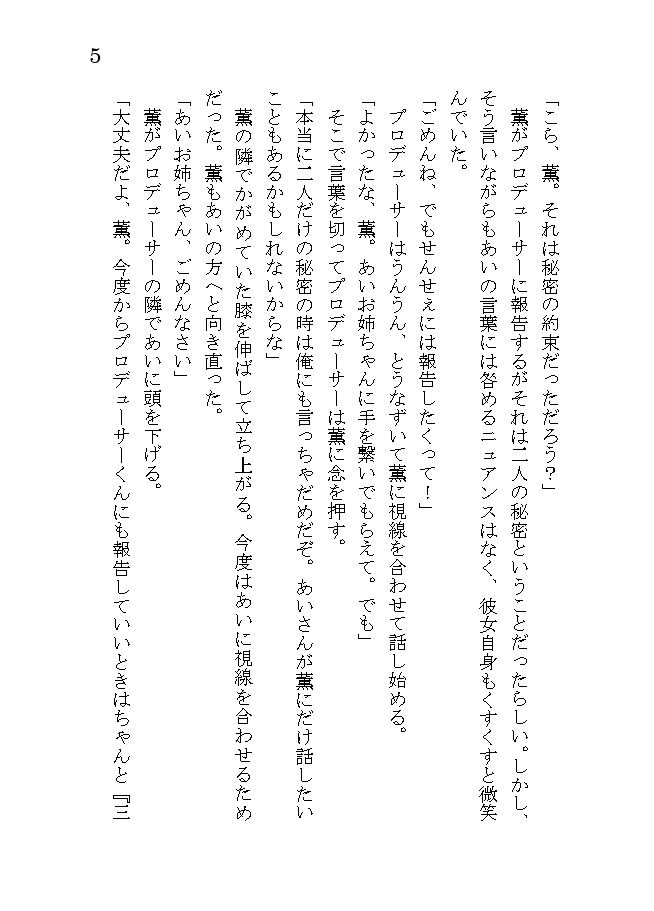 5
「こら、薫。それは秘密の約束だっただろう?」
薫がプロデューサーに報告するがそれは二人の秘密ということだったらしい。しかし、
そう言いながらもあいの言葉には咎めるニュアンスはなく、彼女自身もくすくすと微笑
んでいた。
「ごめんね、でもせんせぇには報告したくって!」
プロデューサーはうんうん、とうなずいて薫に視線を合わせて話し始める。
「よかったな、薫。あいお姉ちゃんに手を繋いでもらえて。でも」
そこで言葉を切ってプロデューサーは薫に念を押す。
「本当に二人だけの秘密の時は俺にも言っちゃだめだぞ。あいさんが薫にだけ話したい
こともあるかもしれないからな」
薫の隣でかがめていた膝を伸ばして立ち上がる。今度はあいに視線を合わせるため
だった。薫もあいの方へと向き直った。
「あいお姉ちゃん、ごめんなさい」
薫がプロデューサーの隣であいに頭を下げる。
「大丈夫だよ、薫。今度からプロデューサーくんにも報告していいときはちゃんと『三